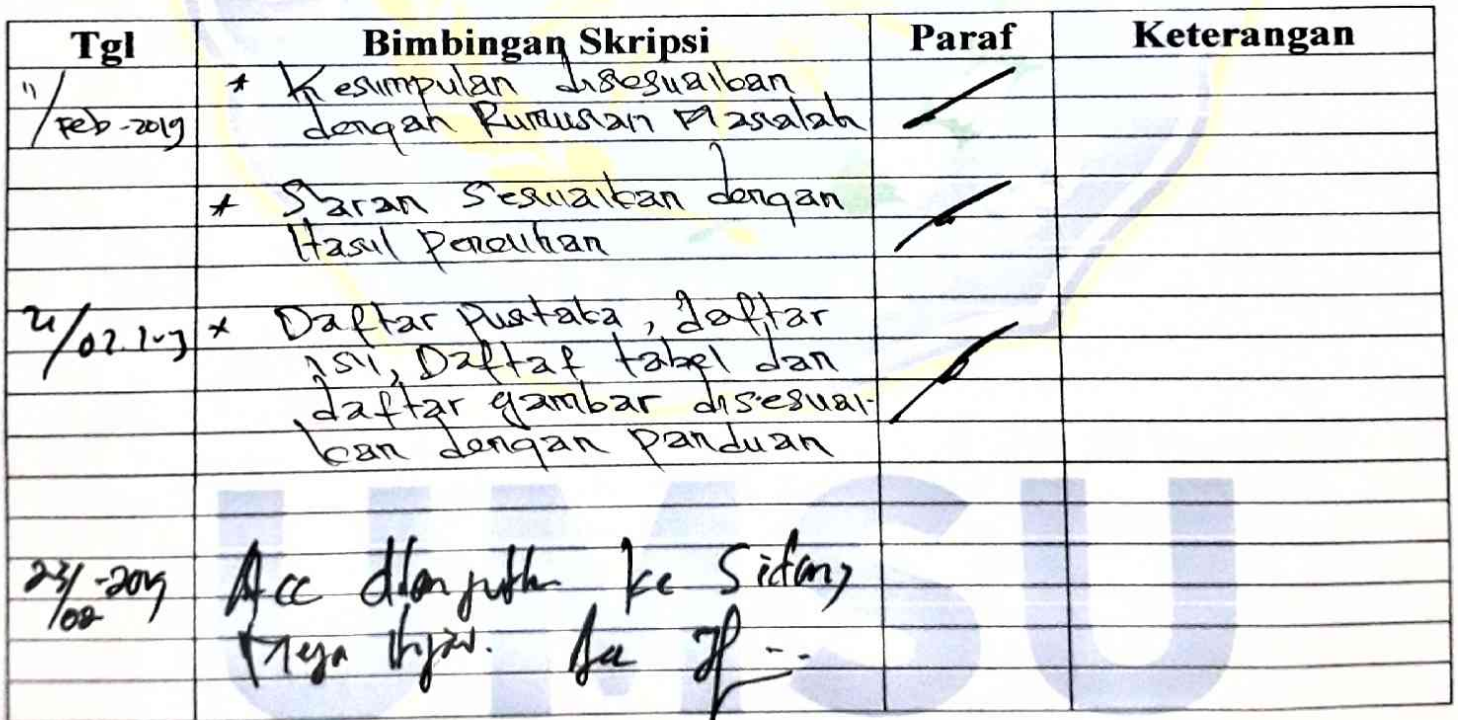 Tgl Bimbingan Skripsi Paraf Keterangan
11/Feb-2019 * Kesimpulan disesuaikan
dengan Rumusan Masalah
* Saran Sesuaikan dengan
Hasil Penelitian
/02.2019 * Daftar Pustaka, daftar
isi, Daftar tabel dan
daftar gambar disesuai-
kan dengan panduan
23/02-2019 Acc dilanjutkan ke Sidang
Meja Hijau. Acc
UMSU